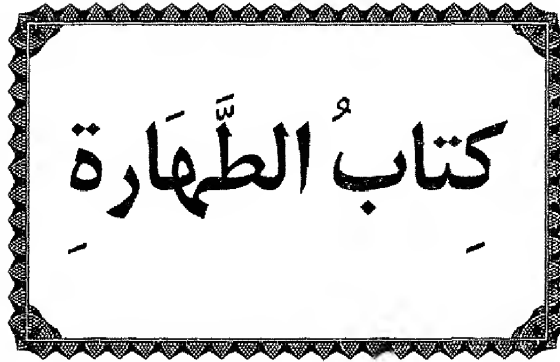 كِتابُ الطَّهَارةِ